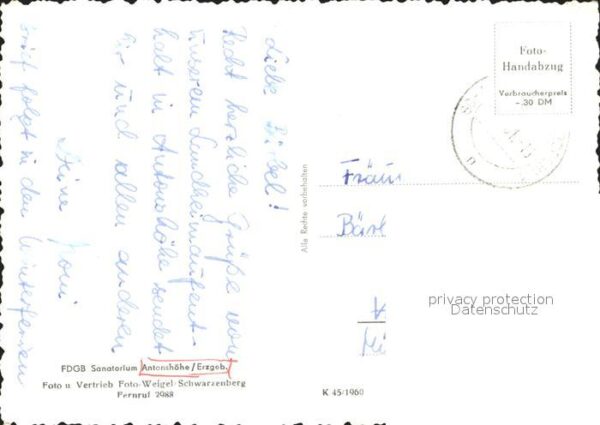 Liebe
Recht herzliche Grüße von
unserem Landheimaufent-
halt in Antonshöhe sendet
Dir und allen anderen
Deine
Brief folgt in den Winterferien
Foto-
Handabzug
Verbraucherpreis
-.30 DM
Alle Rechte vorbehalten
Fräu
Bärb
privacy protection
Datenschutz
FDGB Sanatorium Antonshöhe/Erzgeb.
Foto u Vertrieb Foto-Weigel-Schwarzenberg
Fernruf 2988
K 45/1960